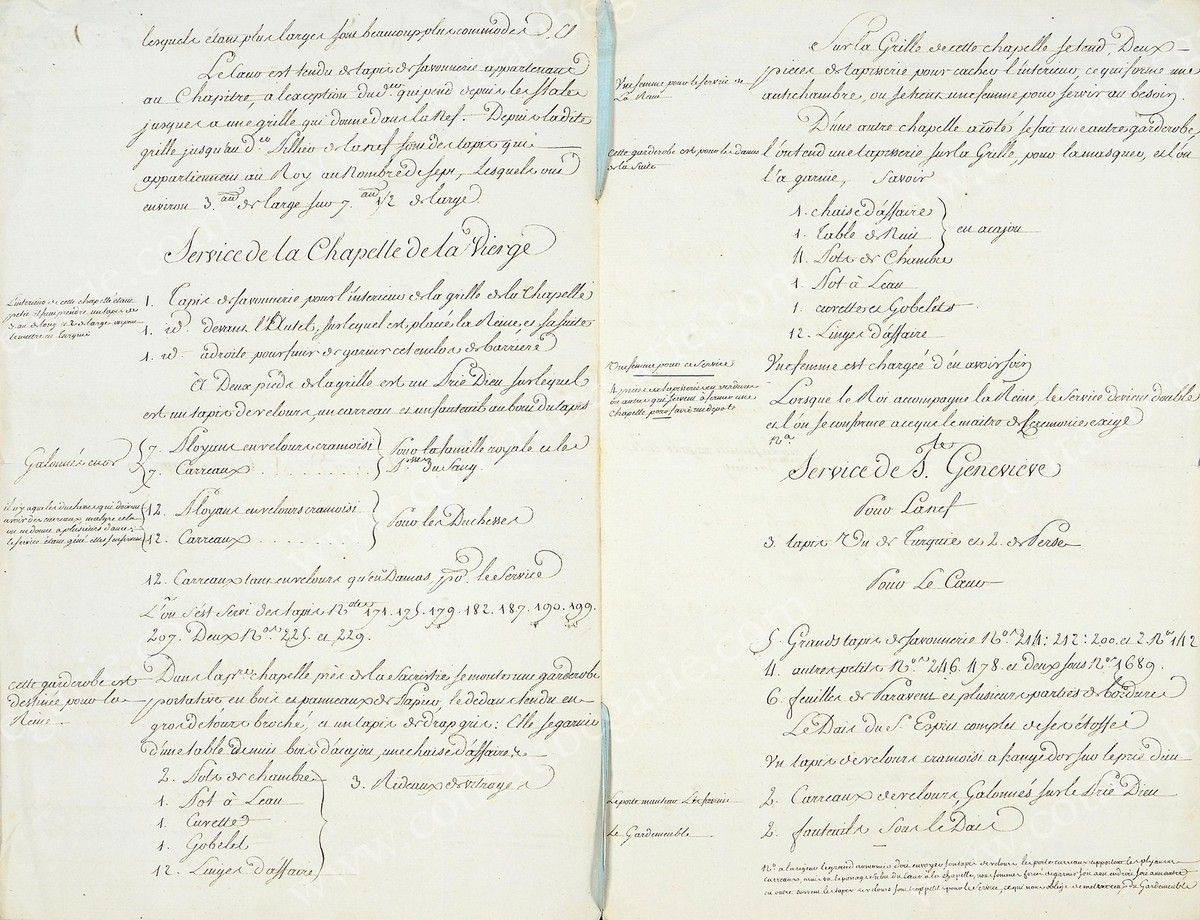 lesquels étant plus larges sont beaucoup plus commodes
Le Cœur est tendu de tapis de Savonnerie appartenant
au Chapitre, a l'exception du d.er qui pend depuis les Stales
jusques a une grille qui donne dans la Nef. Depuis la dite
grille jusqu'au d.er Pillier de la nef sont des tapis qui
appartiennent au Roy au Nombre de sept, Lesquels ont
environ 3. au de large sur 7. au 1/2 de large
Service de la Chapelle de la Vierge
L'interieur de cette chapelle étant
petit il faut prendre un tapis de
le mettre en Turquie
1. Tapis de Savonnerie pour l'interieur de la grille de la Chapelle
1. id. devant l'Autel, sur lequel est placée la Reine, et sa suite
1. id. a droite pour finir de garnir cet enclos de barriere
A Deux pieds de la grille est un Prie Dieu sur lequel
est un tapis de velours, un carreau et un fauteuil au bout du tapis
Galonnés en or
7. Ployans en velours cramoisi
7. Carreaux . . . . . . . .
Pour la famille royale et les
P.sses Du Sang.
il n'y a que les duchesses qui doivent
avoir des carreaux malgré cela
on en donne a plusieurs dames
le service étant gêné
12. Ployans en velours cramoisi
12. Carreaux . . . . . . .
Pour les Duchesses
12. Carreaux tant en velours qu'en Damas pr. le Service
L'on s'est Servi des tapis Nos 171. 175. 179. 182. 187. 190. 199.
207. Deux Nos 225. et 229.
cette garderobe est
destinée pour la
Reine
Dans la p.re chapelle près de la Sacristie se monte une garderobe
portative en bois et panneaux de Papier, le dedans tendu en
gros de tours broché, et un tapis de drap gris: Elle se garnie
d'une table de nuit bois d'acajou, une chaise d'affaire,
2. Pots de chambre
1. Pot à L'eau
1. Cuvette
1. Gobelet
12. Linges d'affaire
3. Rideaux de vitrages
Sur la Grille de cette chapelle se tend, Deux
pieces de tapisserie pour cacher l'interieur, ce qui forme une
antichambre, ou se tient une femme pour servir au besoin
Une femme pour le Service de
La Reine
D'une autre chapelle a coté se fait une autre garderobe
l'on tend une tapisserie sur la Grille, pour la masquer, et l'on
l'a garnie, Savoir
cette garderobe est pour les dames
de la Suite
1. chaise d'affaire
1. Table de Nuit
en acajou
4. Pots de Chambre
1. Pot à L'eau
1. cuvette et Gobelets
12. Linges d'affaire
Une femme pour ce Service
Une femme est chargée d'en avoir soin
4 pieces de tapisserie en verdure
ou autre qui servent a fermer une
chapelle pour faire un depots
Lorsque le Roi accompagne la Reine, le Service devient double
et l'on se conforme a ce que le maitre de Ceremonie exige
Na
Service de S.te Genevieve
Pour La nef
3. tapis Un de Turquie et 2. de Perse
Pour Le Cœur
5. Grands tapis de Savonnerie Nos 214: 212: 200. et 2. No 142
4. autres petits Nos 246. 478. et Deux sous No 1689.
6. feuilles de Paravent et plusieurs parties de bordures
Le Dais du St. Esprit complet de ses étoffes
Un tapis de velours cramoisi a frange d'or sur le prie dieu
Le porte manteau
2. Carreaux de velours, Galonnés sur le Prie Dieu
Le Gardemeuble
2. fauteuils Sous le Dais